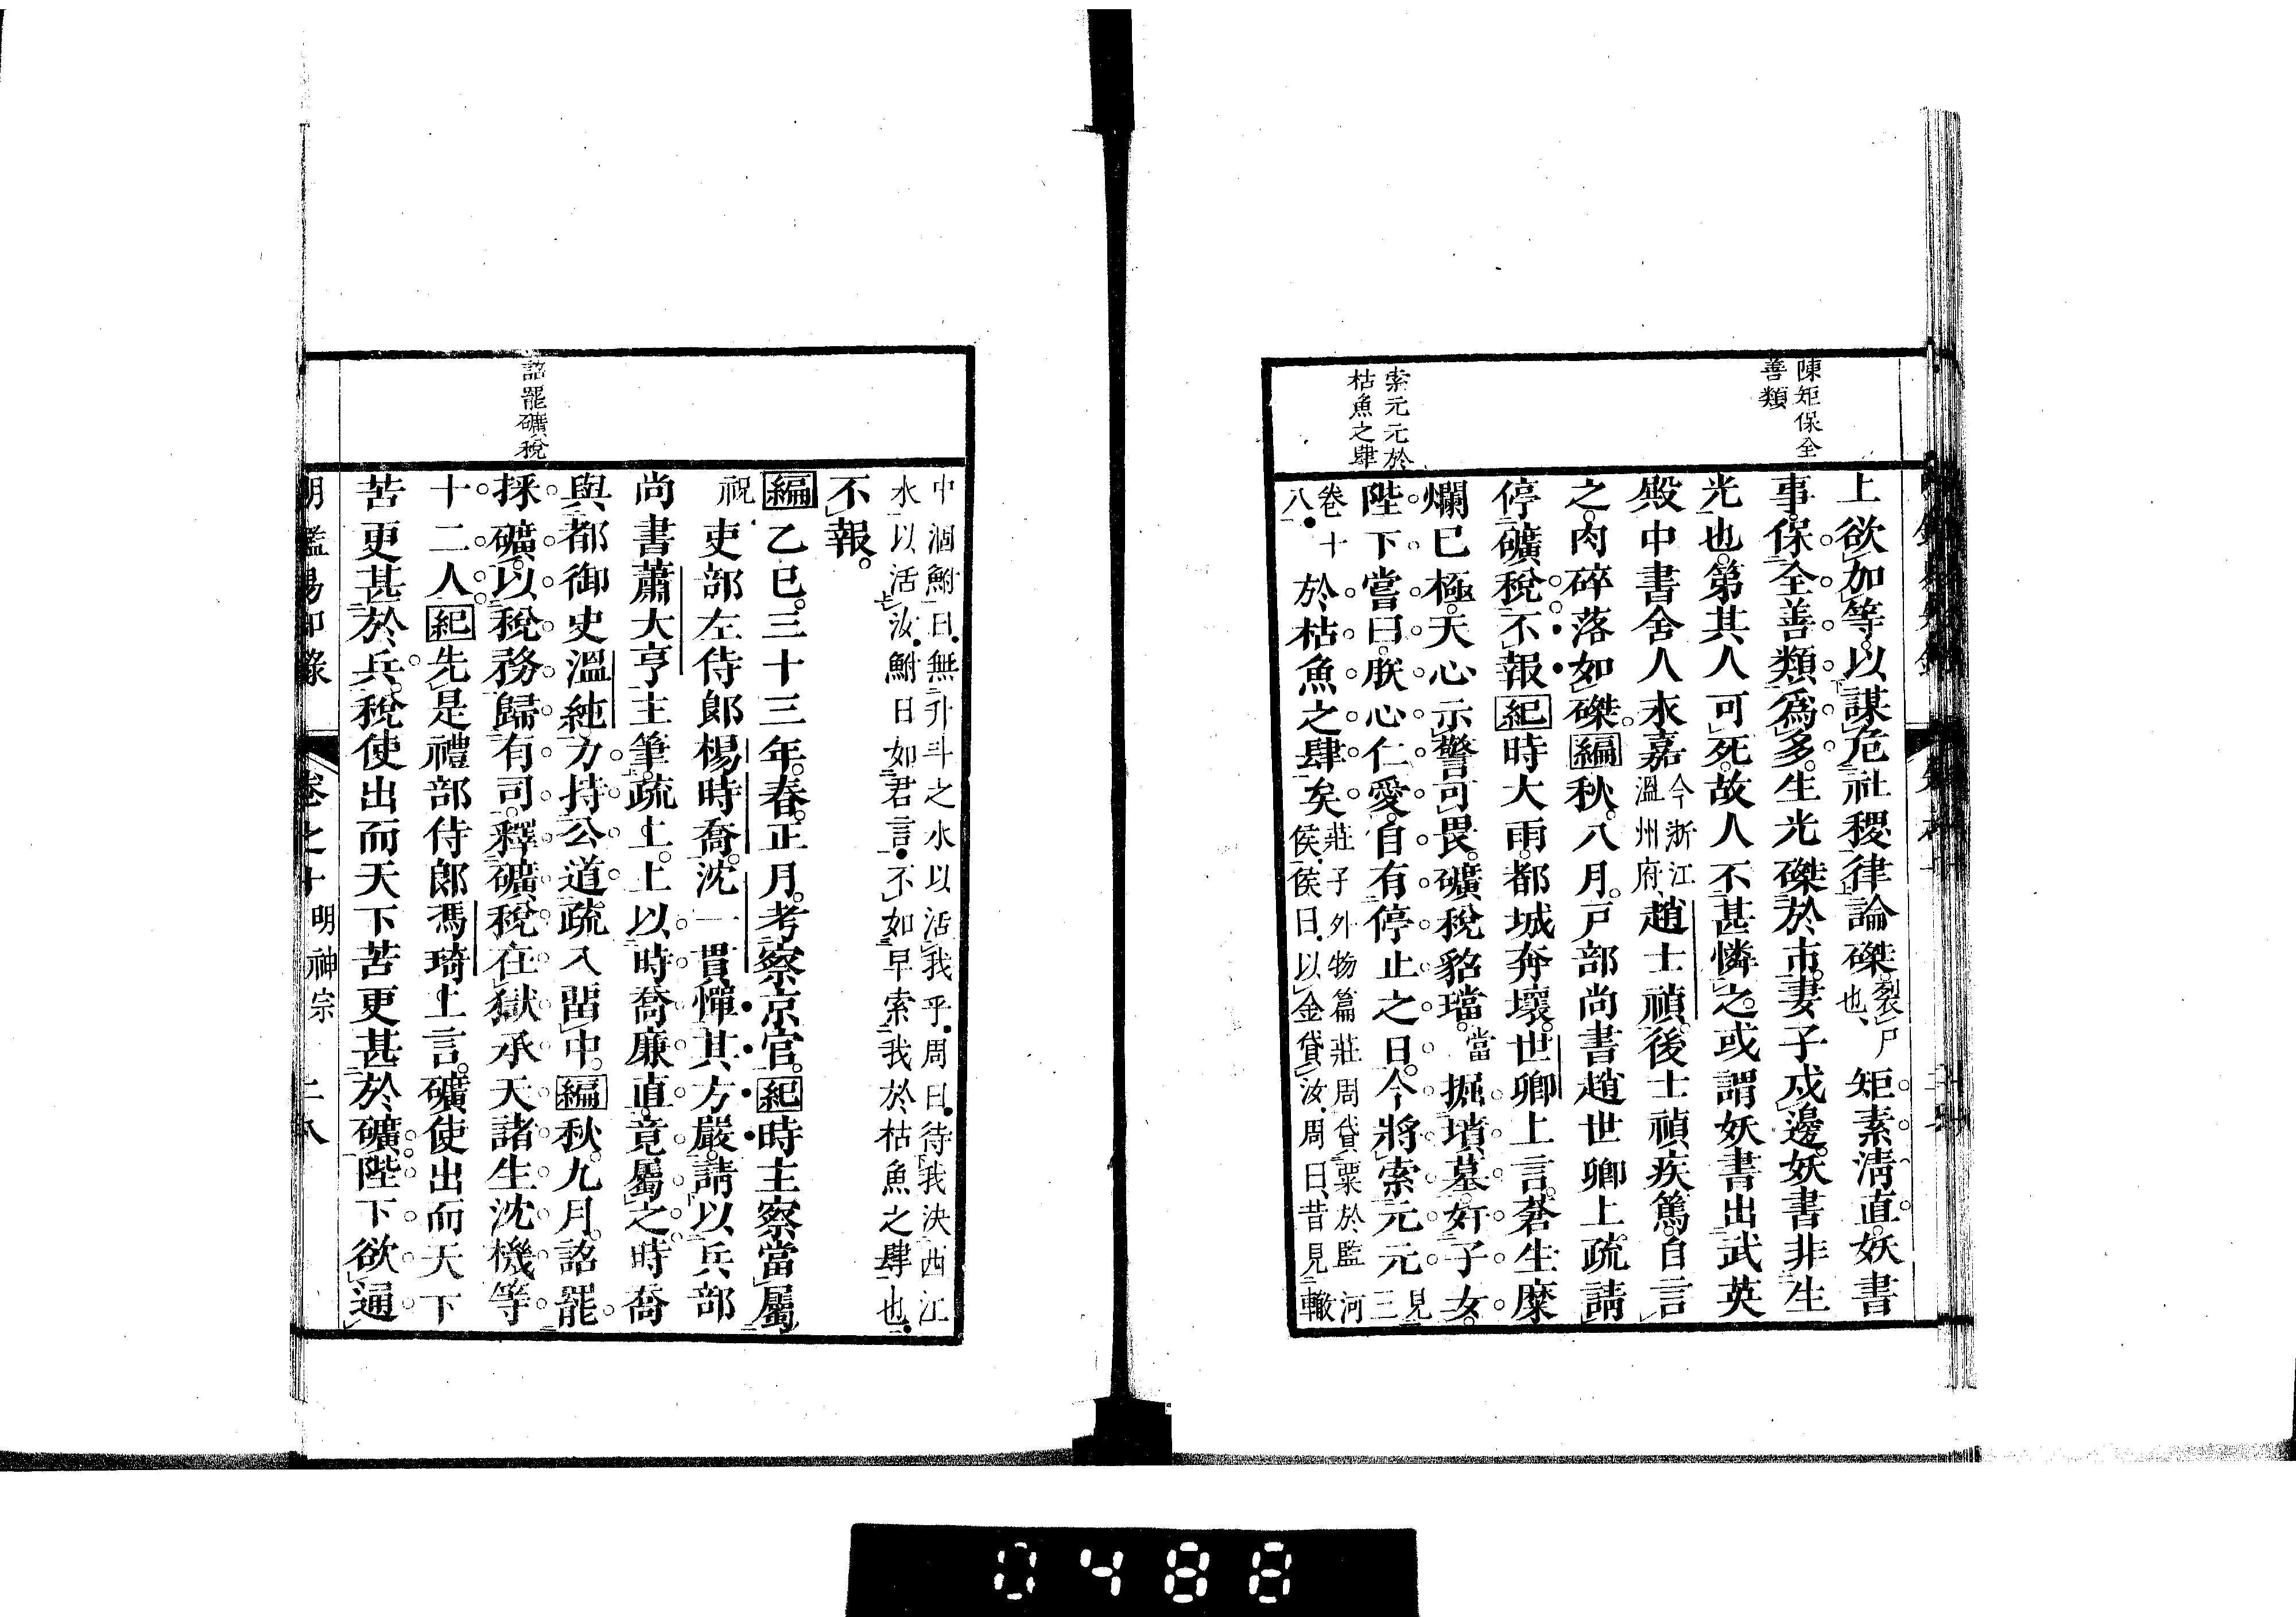 陳矩保全
善類
索元元於
枯魚之肆
上欲加等以謀危社稷律論磔裂尸也矩素淸直妖書
事保全善類爲多生光磔於市妻子戍邊妖書非生
光也第其人可死故人不甚憐之或謂妖書出武英
殿中書舍人永嘉今浙江溫州府趙士禎後士禎疾篤自言
之肉碎落如磔編秋八月戸部尚書趙世卿上疏請
停礦稅不報紀時大雨都城奔壞世卿上言蒼生糜
爛已極天心示警可畏礦稅貂璫當掘墳墓奸子女
陛下嘗曰朕心仁愛自有停止之日今將索元元見三
卷十八於枯魚之肆矣莊子外物篇莊周貸粟於監河
侯侯曰以金貸汝周曰昔見車轍
詔罷礦稅
中涸鮒曰無升斗之水以活我乎周曰待我決西江
水以活汝鮒曰如君言不如早索我於枯魚之肆也
不報
編乙巳三十三年春正月考察京官紀時主察當屬
祝吏部左侍郞楊時喬沈一貫憚其方嚴請以兵部
尚書蕭大亨主筆疏上上以時喬廉直竟屬之時喬
與都御史溫純力持公道疏入留中編秋九月詔罷
採礦以稅務歸有司釋礦稅在獄承天諸生沈機等
十二人紀先是禮部侍郞馮琦上言礦使出而天下
苦更甚於兵稅使出而天下苦更甚於礦陛下欲通
明鑑易知錄 卷之十 明神宗 二八
0488